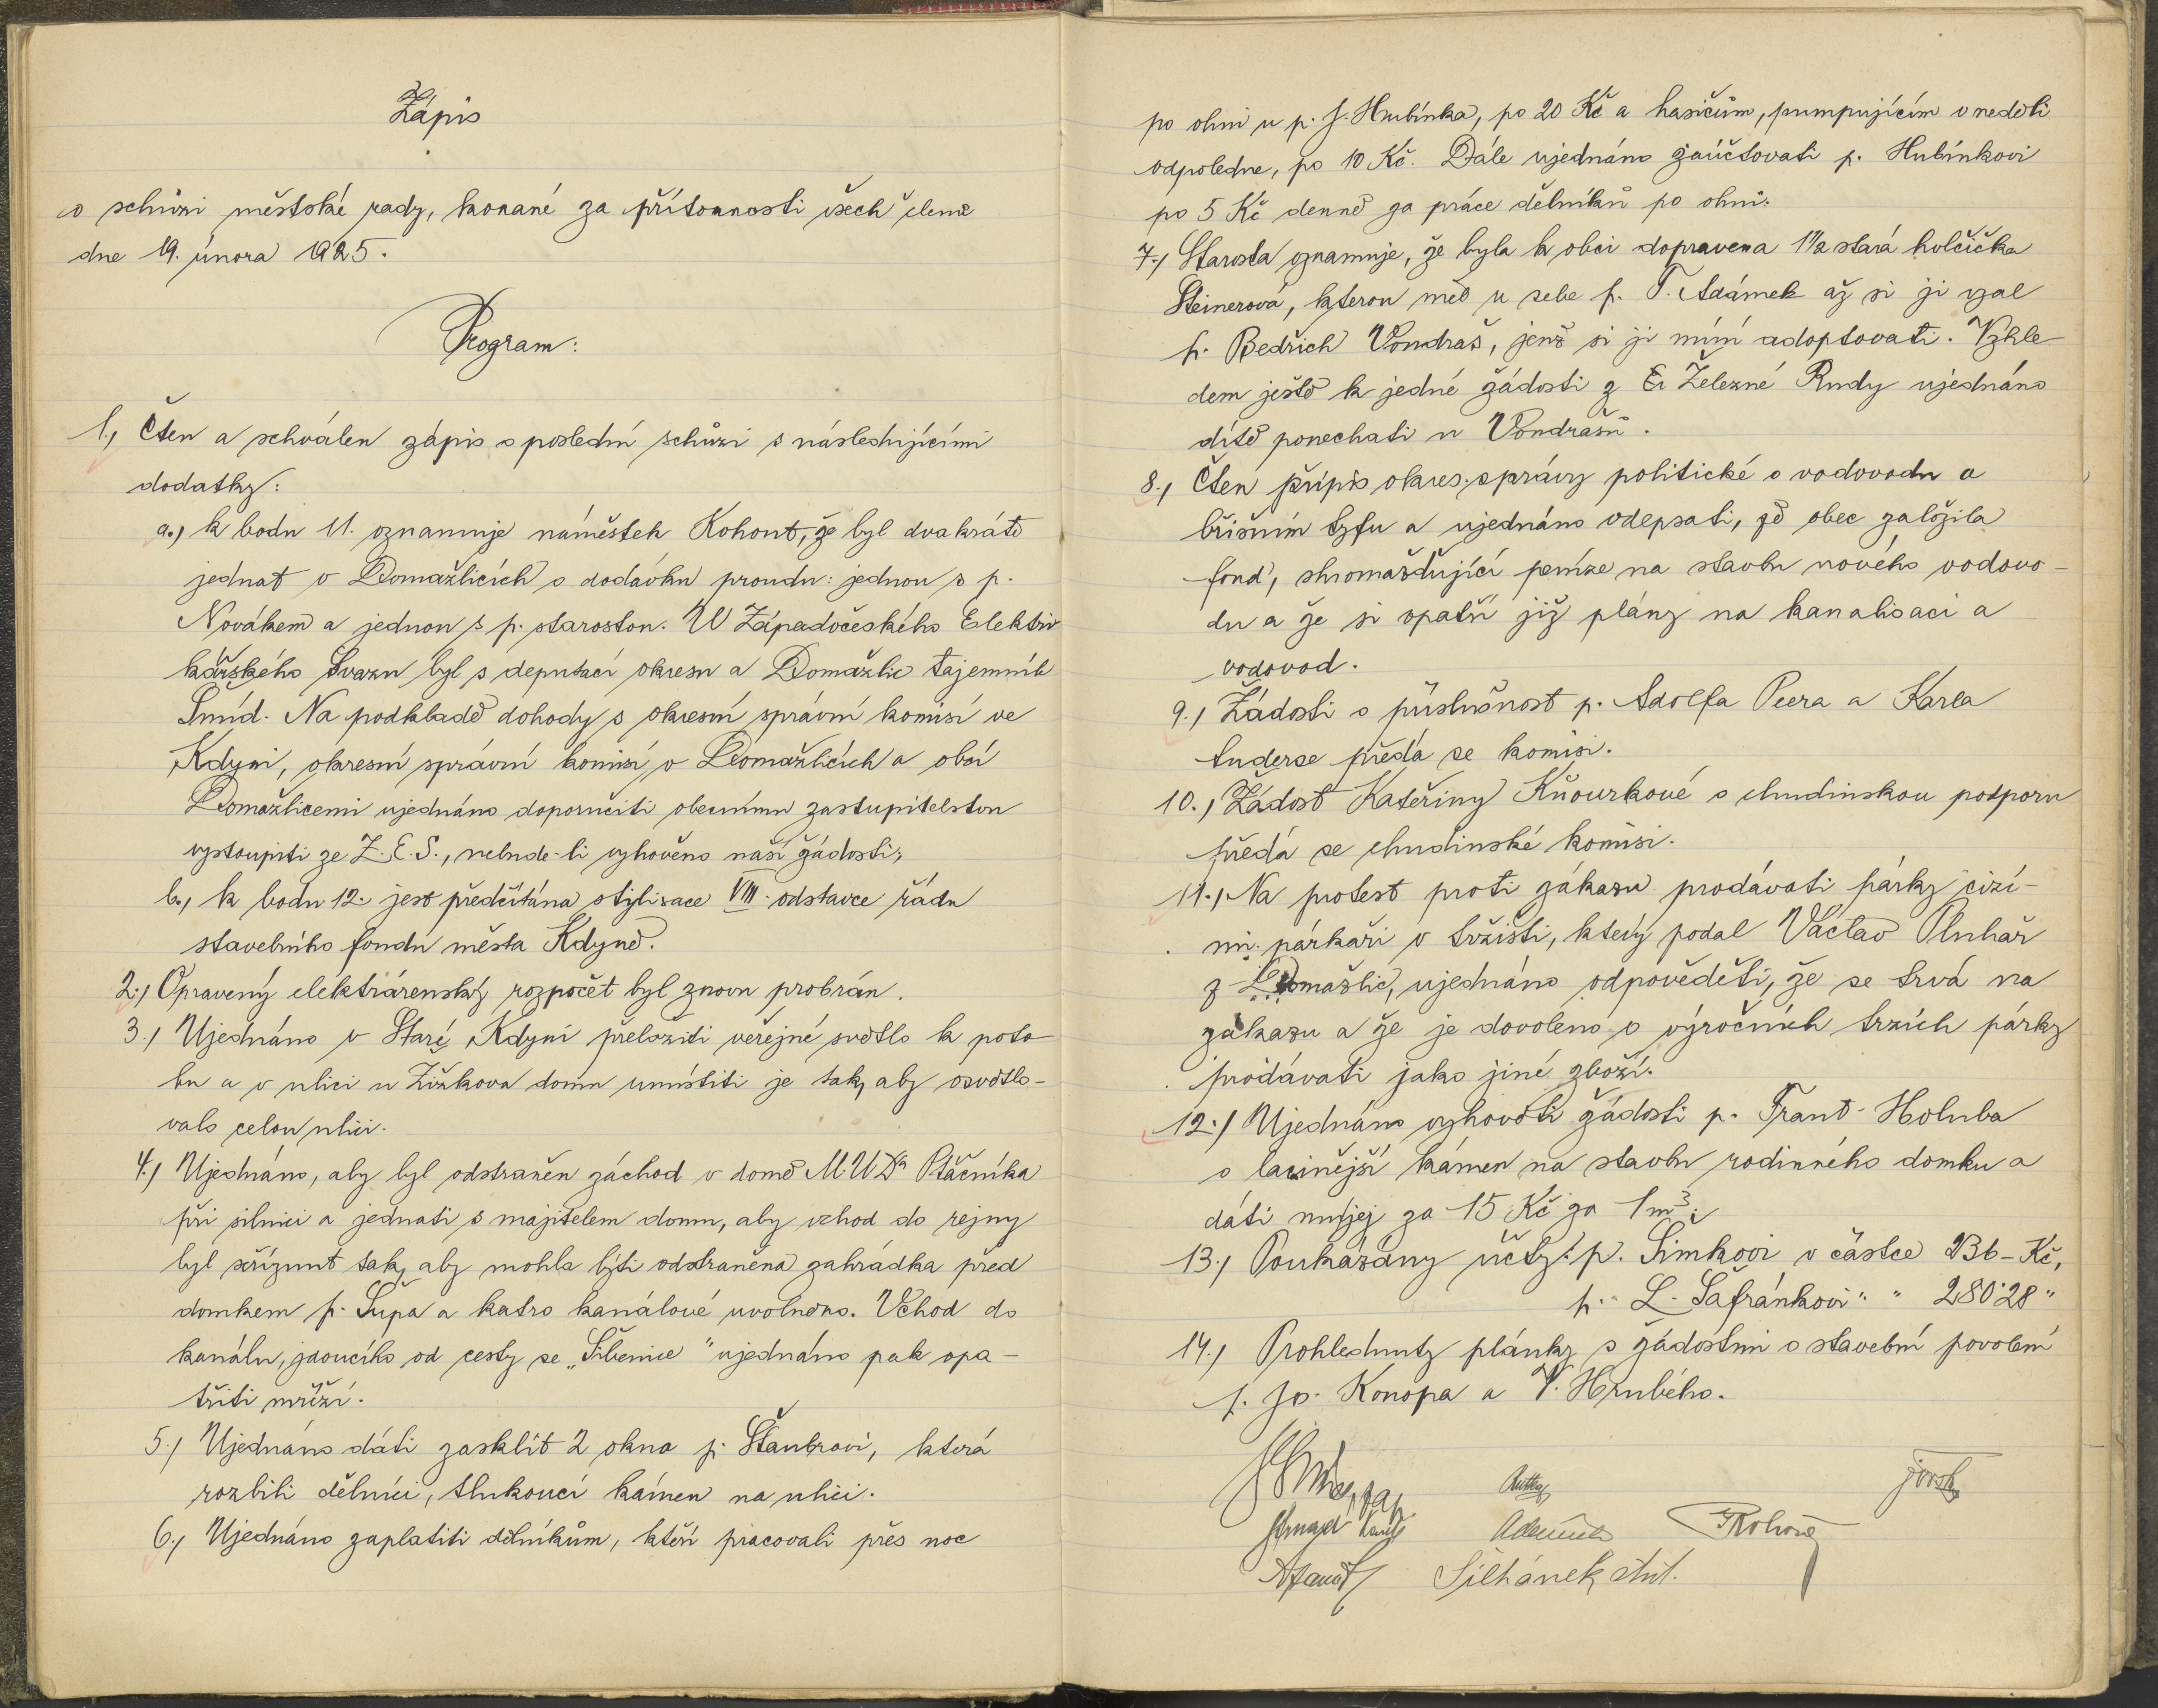 Zápis
o schůzi městské rady, konané za přítomnosti všech členů
dne 19. února 1925.
Program:
1., Čten a schválen zápis o poslední schůzi s následujícími
dodatky:
a., k bodu 11. oznamuje náměstek Kohout, že byl dvakráte
jednat v Domažlicích o dodávku proudu: jednou s p.
Novákem a jednou s p. starostou. U Západočeského Elektri
kářského Svazu byl s deputací okresu a Domažlic tajemník
Šmíd. Na podkladě dohody s okresní správní komisí ve
Kdyni, okresní správní komisí v Domažlicích a obcí
Domažlicemi ujednáno doporučiti obecnímu zastupitelstvu
vystoupiti ze Z. E. S., nebude-li vyhověno naší žádosti;
b., k bodu 12. jest předčítána stylisace VIII. odstavce řádu
stavebního fondu města Kdyně.
2., Opravený elektrárenský rozpočet byl znovu probrán.
3./ Ujednáno v Staré Kdyni přeložiti veřejné světlo k poto
ku a v ulici u Žižkova domu umístiti je tak, aby osvětlo-
valo celou ulici.
4./ Ujednáno, aby byl odstraněn záchod v domě M. U Dra Ptáčníka
při silnici a jednati s majitelem domu, aby vchod do rejny
byl seříznut tak, aby mohla býti odstraněna zahrádka před
domkem p. Šupa a katro kanálové uvolněno. Vchod do
kanálu, jdoucího od cesty se „Šibenice" ujednáno pak opa-
třiti mříží.
5./ Ujednáno dáti zasklít 2 okna p. Štaubrovi, která
rozbili dělníci, tlukoucí kámen na ulici.
6., Ujednáno zaplatiti dělníkům, kteří pracovali přes noc
po ohni u p. J. Hubínka, po 20 Kč a hasičům, pumpujícím v neděli
odpoledne, po 10 Kč. Dále ujednáno zaúčtovati p. Hubínkovi
po 5 Kč denně za práce dělníků po ohni.
7./ Starosta oznamuje, že byla k obci dopravena 1½ stará holčička
Steinerová, kterou měl u sebe p. T. Adámek až si ji vzal
p. Bedřich Vondraš, jenž si ji míní adoptovati. Vzhle
dem ještě k jedné žádosti z Železné Rudy ujednáno
dítě ponechati u Vondrašů.
8., Čten přípis okres. správy politické o vodovodu a
břišním tyfu a ujednáno odepsati, že obec založila
fond, shromažďující peníze na stavbu nového vodovo-
du a že si opatří již plány na kanalisaci a
vodovod.
9., Žádosti o příslušnost p. Adolfa Peera a Karla
Luderse předá se komisi.
10., Žádost Kateřiny Kňourkové o chudinskou podporu
předá se chudinské komisi.
11., Na protest proti zákazu prodávati párky cizí-
mi párkaři v tržišti, který podal Václav Pluhař
z Domažlic, ujednáno odpověděti, že se trvá na
zákazu a že je dovoleno o výročních trzích párky
prodávati jako jiné zboží.
12./ Ujednáno vyhověti žádosti p. Frant. Holuba
o lacinější kámen na stavbu rodinného domku a
dáti mu jej za 15 Kč za 1 m³.
13., Poukázány účty: p. Šimkovi v částce 236 - Kč,
p. L. Šafránkovi " " 280·28 "
14., Prohlednuty plánky s žádostmi o stavební povolení
p. Jos. Konopa a V. Hrubého.
Adámek
Kohout
Šilhánek Ant.